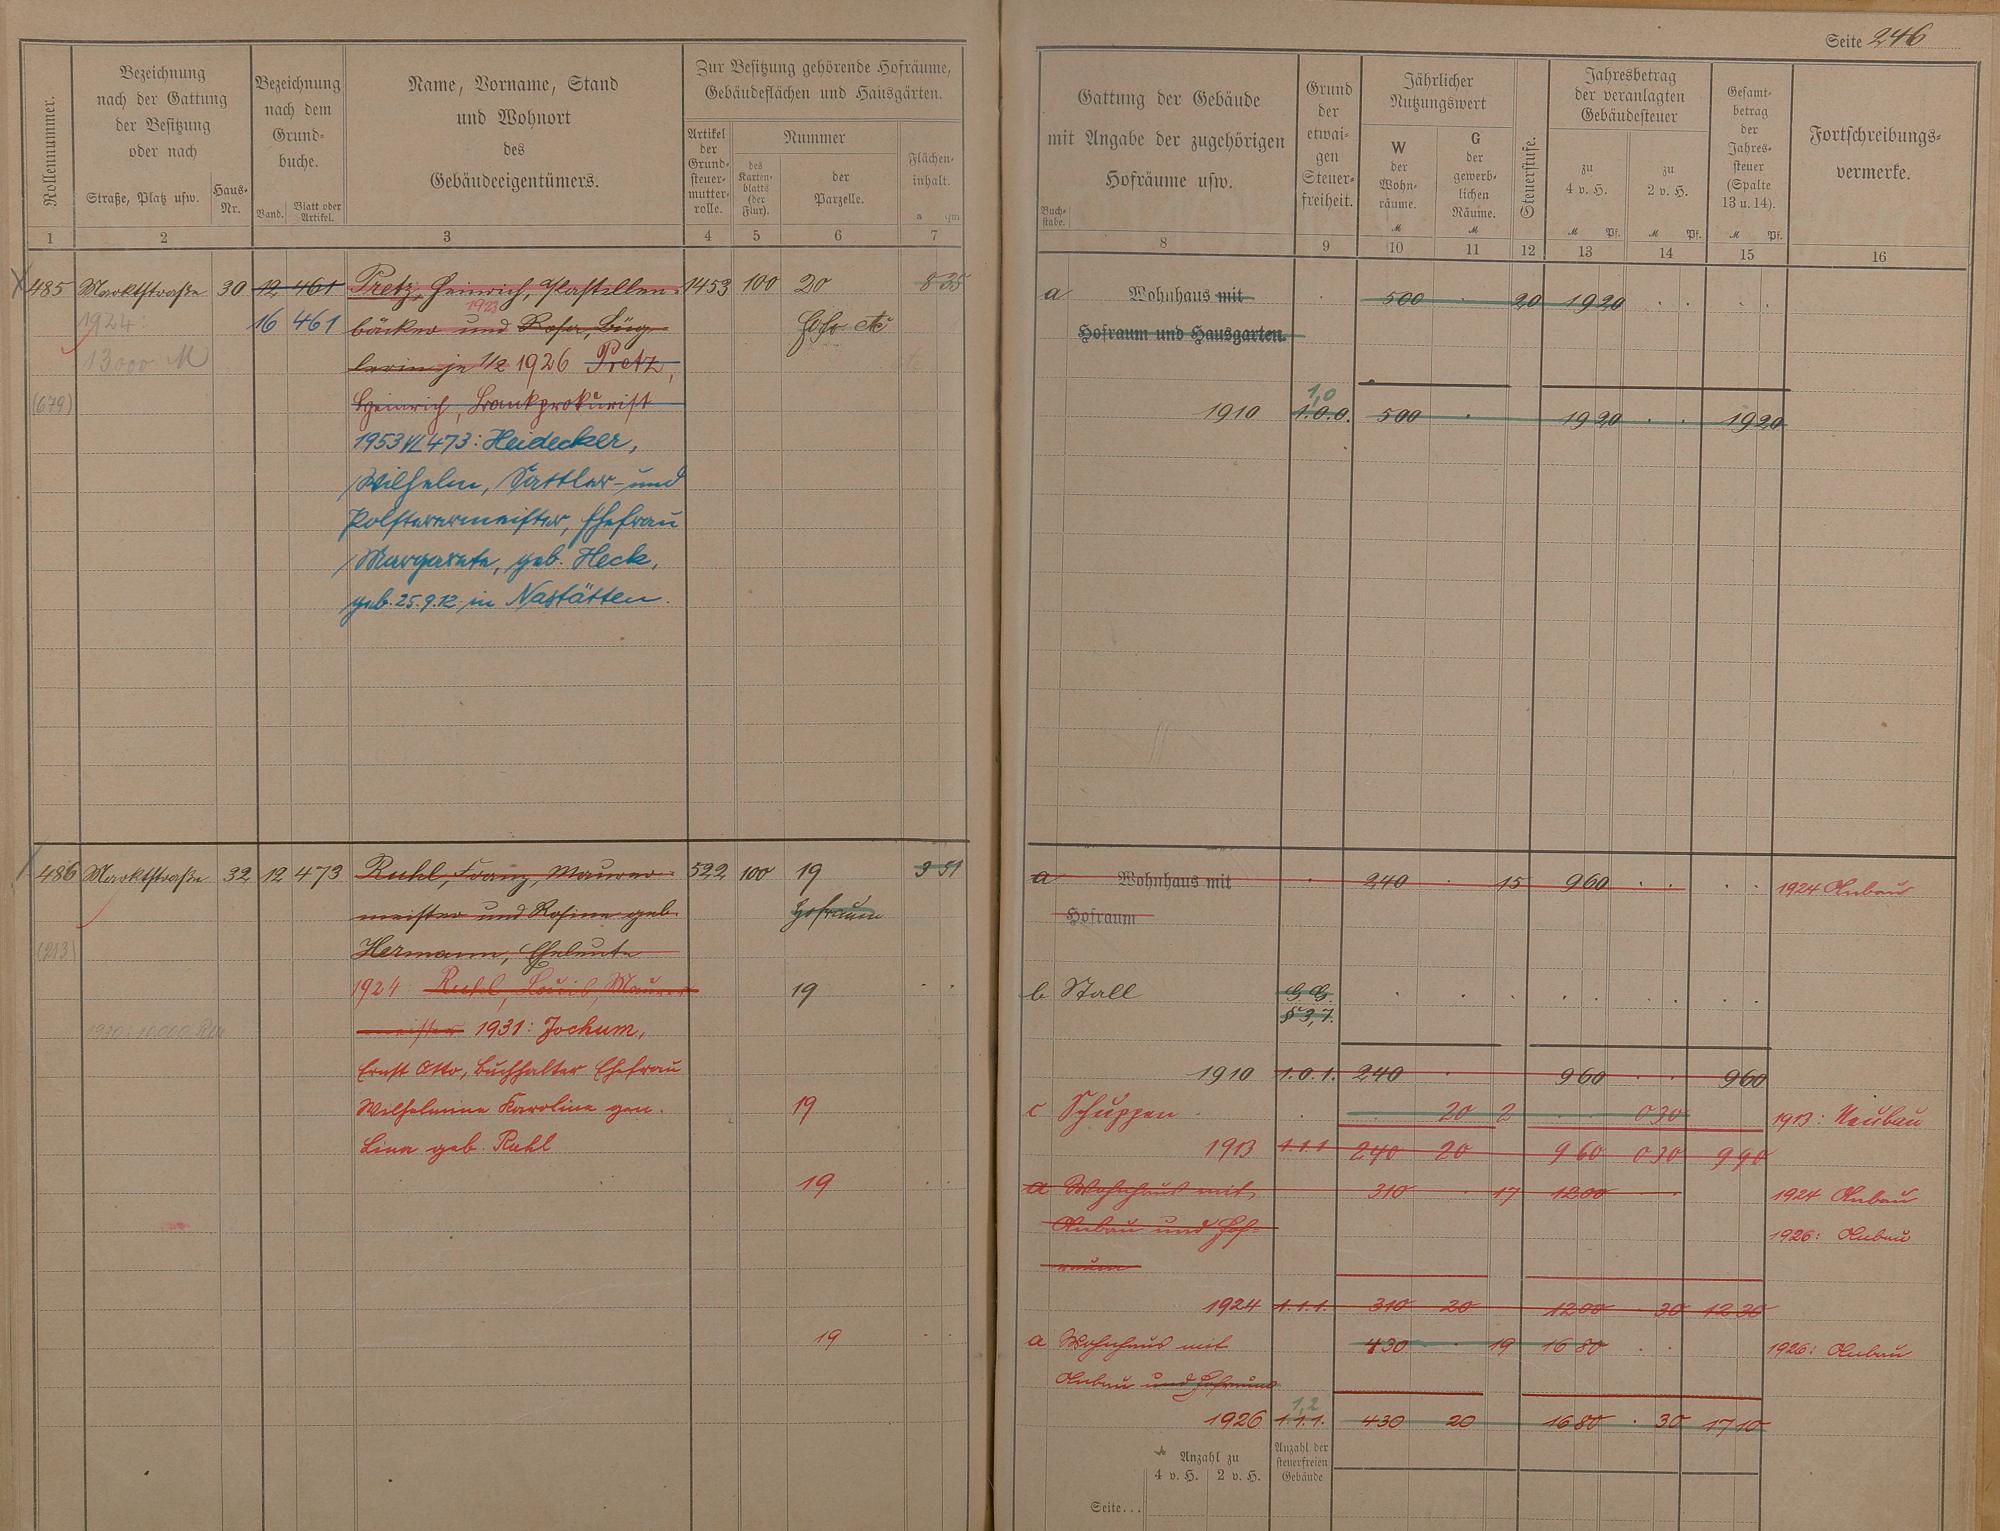 Seite 246
Rollennummer.
Bezeichnung
nach der Gattung
der Besitzung
oder nach
Straße, Platz usw.
Haus-
Nr.
Bezeichnung
nach dem
Grund-
buche.
Band.
Blatt oder
Artikel.
Name, Vorname, Stand
und Wohnort
des
Gebäudeeigentümers.
Zur Besitzung gehörende Hofräume,
Gebäudeflächen und Hausgärten.
Artikel
der
Grund-
steuer-
mutter-
rolle.
Nummer
des
Karten-
blatts
(der
Flur).
der
Parzelle.
Flächen-
inhalt.
a qm
1 2 3 4 5 6 7
485 Marktstraße 30 12 461 Pretz, Heinrich, 1453 100 20 8 35
1924: 16 461 1923
bäcker und Rosa, Büg-
13000 M lerin je 1/2 1926 Pretz,
(679) Heinrich, Bankprokurist
1953 VL 473: Heidecker,
Wilhelm, Sattler- und
Polsterermeister, Ehefrau
Margarete, geb. Heck,
geb. 25.9.12 in Nastätten.
486 Marktstraße 32 12 473 Ruhl, Franz, Maurer- 522 100 19 3 51
meister und Rosine geb. Hofraum
(213) Hermann, Eheleute
1924 Ruhl, Louis, Maurer- 19
1930: 10000 meister 1931: Jochum,
Ernst Otto, Buchhalter Ehefrau
Wilhelmine Karoline gen. 19
Lina geb. Ruhl
19
19
Gattung der Gebäude
mit Angabe der zugehörigen
Hofräume usw.
Buch-
stabe.
Grund
der
etwai-
gen
Steuer-
freiheit.
Jährlicher
Nutzungswert
W
der
Wohn-
räume.
M
G
der
gewerb-
lichen
Räume.
M
Steuerstufe.
Jahresbetrag
der veranlagten
Gebäudesteuer
zu
4 v. H.
M Pf.
zu
2 v. H.
M Pf.
Gesamt-
betrag
der
Jahres-
steuer
(Spalte
13 u. 14).
M Pf.
Fortschreibungs-
vermerke.
8 9 10 11 12 13 14 15 16
a Wohnhaus mit 500 20 19 20
Hofraum und Hausgarten.
1,0
1910 1.0.0. 500 19 20 19 20
a Wohnhaus mit 240 15 9 60 1924 Anbau
Hofraum
b Stall G.G.
§ 3,7.
1910 1.0.1. 240 9 60 9 60
c Schuppen 20 2 0 30 1913: Neubau
1913 1.1.1 240 20 9 60 0 30 9 90
a Wohnhaus mit 310 17 12 00 1924 Anbau
Anbau und Hof- 1926: Anbau
raum
1924 1.1.1. 310 20 12 00 30 12 30
a Wohnhaus mit 430 19 16 80 1926: Anbau
Anbau und Hofraum
1,2
1926 1.1.1. 430 20 16 80 30 17 10
Anzahl zu
4 v. H. 2 v. H.
Anzahl der
steuerfreien
Gebäude
Seite...